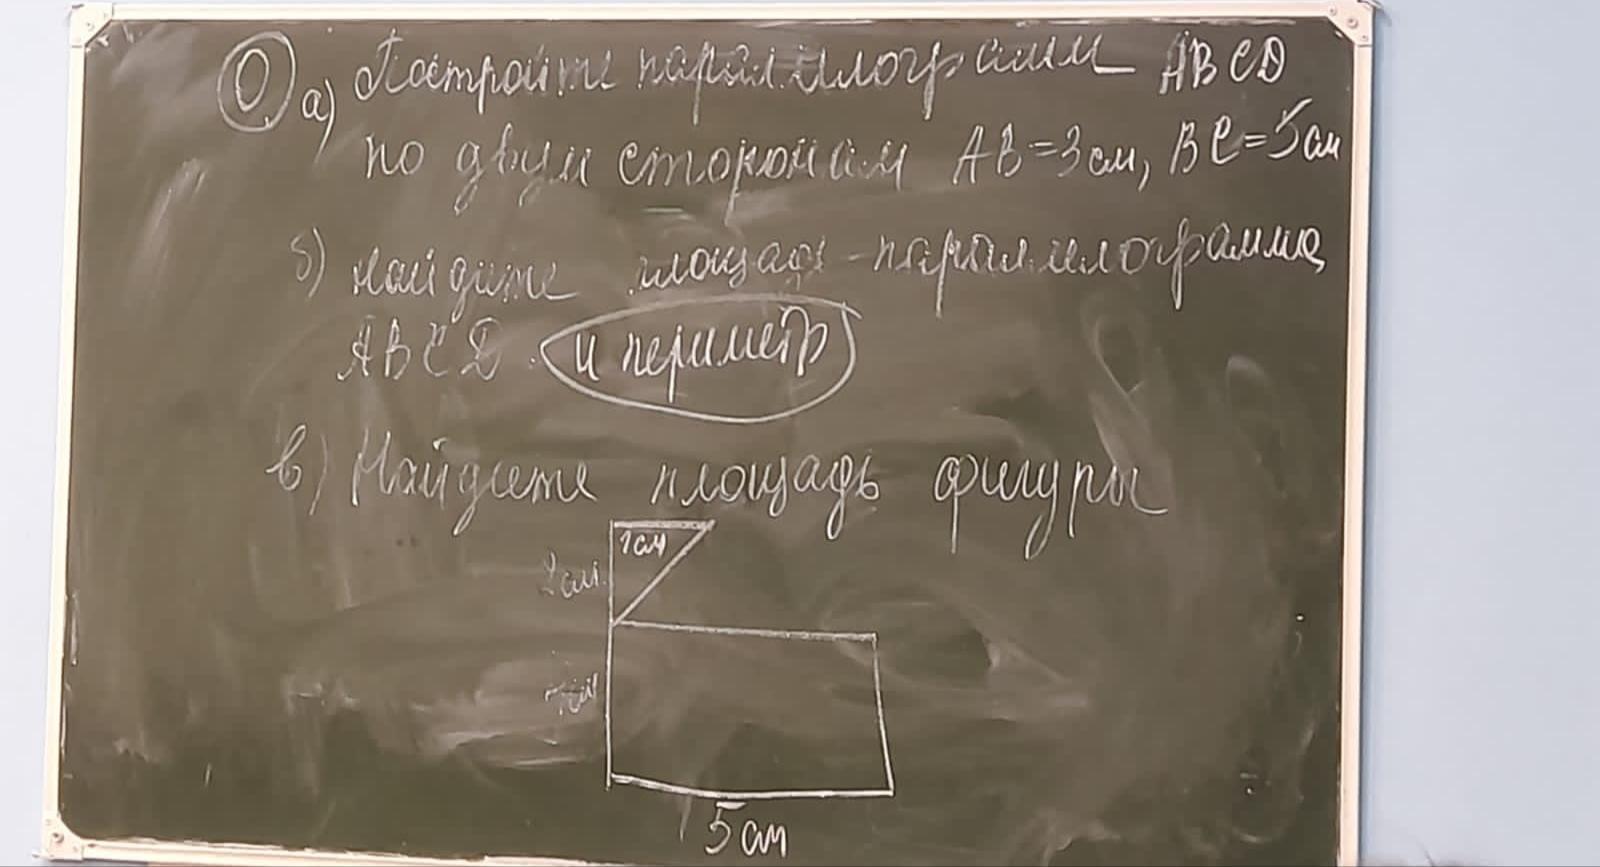 0 а) Постройте параллелограмм ABCD
по двум сторонам AB=3см, BC=5см
б) Найдите площадь параллелограмма
ABCD. и периметр
в) Найдите площадь фигуры
1см
2см
5см